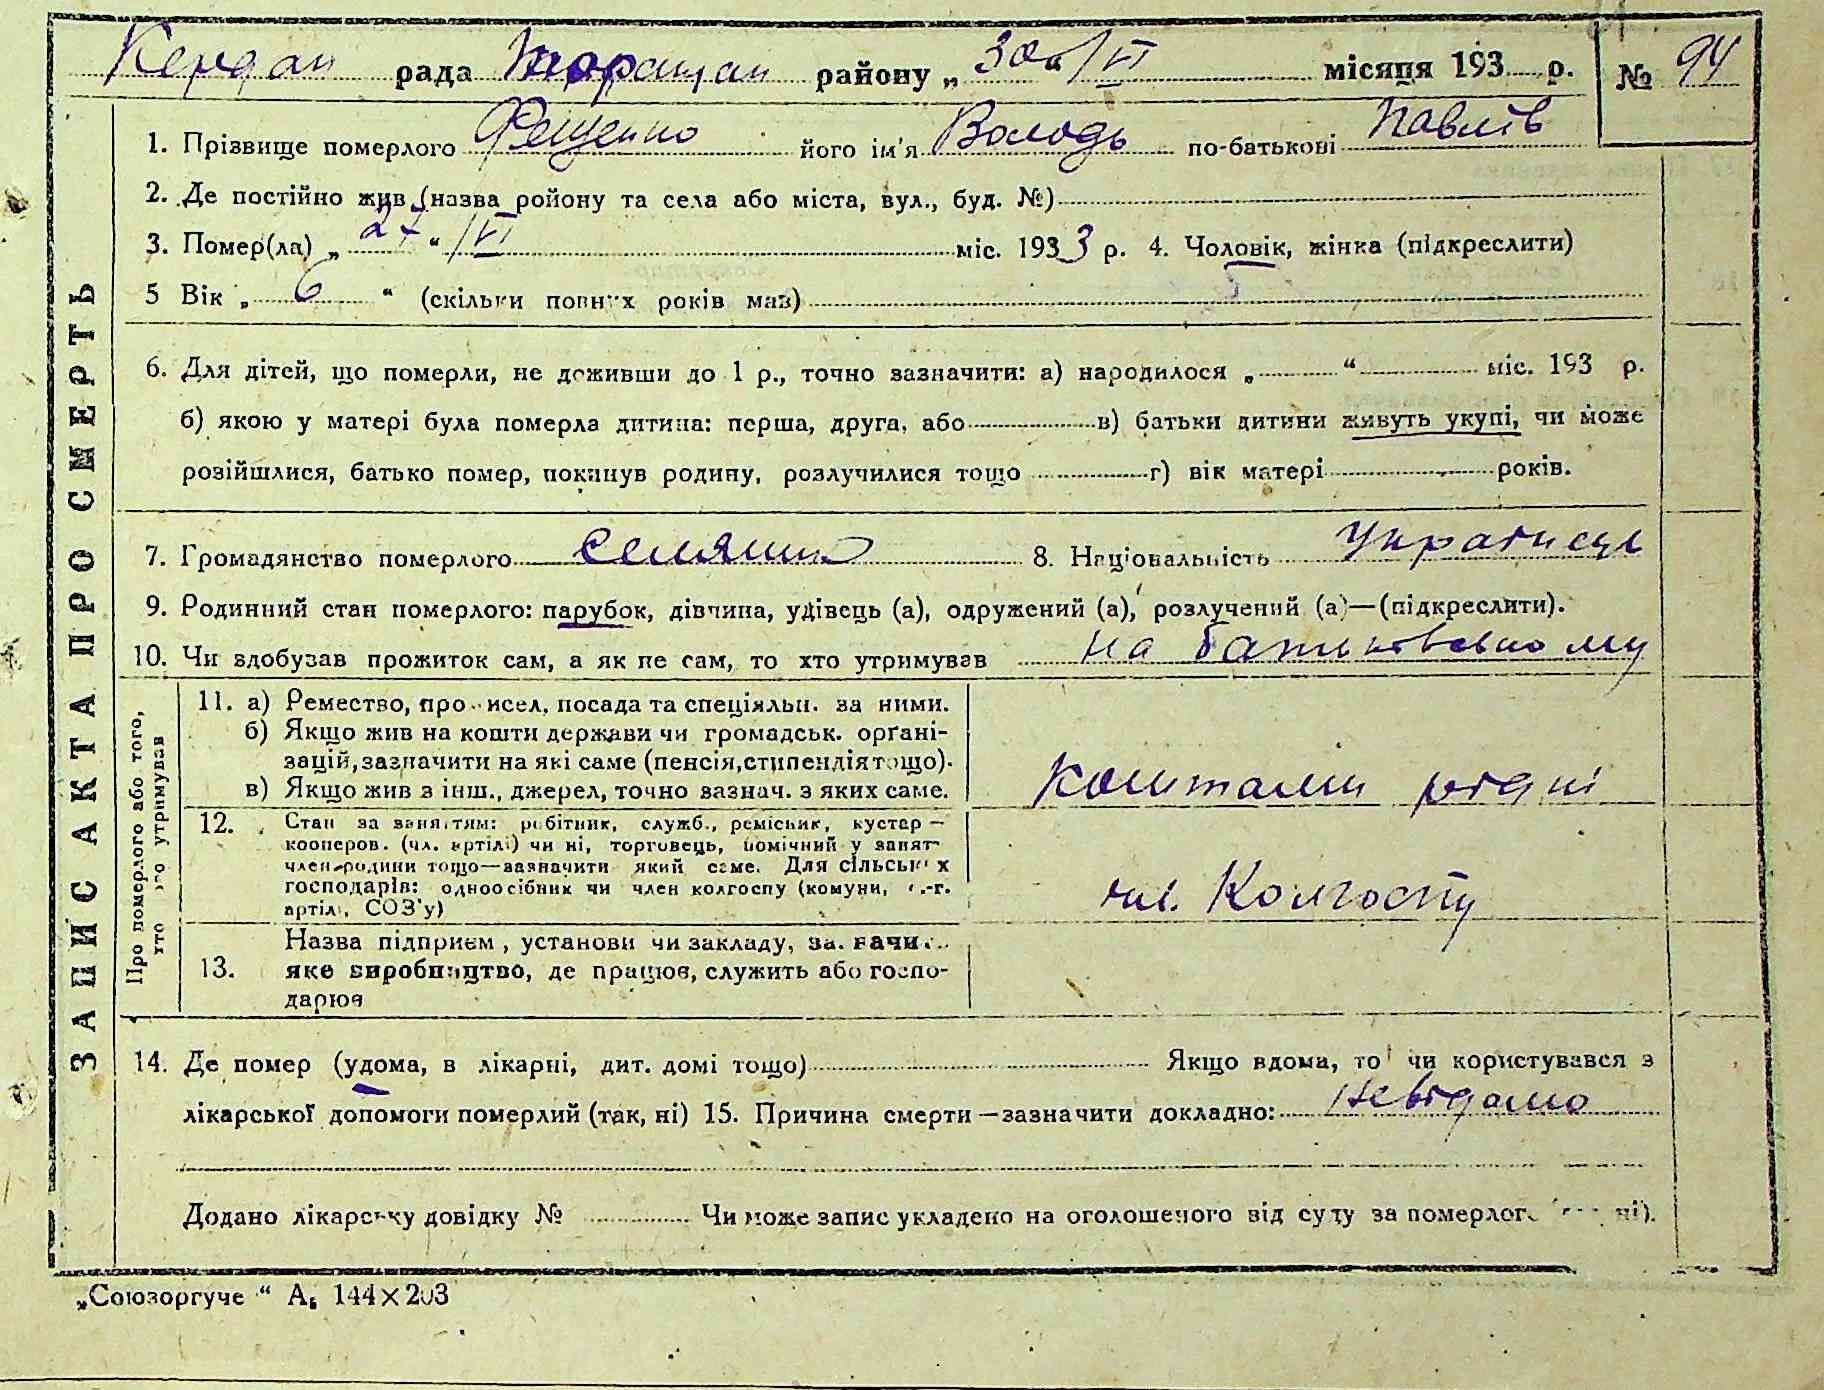 Кердан рада Таращан району „30“ /VI місяця 193 р. № 94
ЗАПИС АКТА ПРО СМЕРТЬ
1. Прізвище померлого Фещенко його ім'я Володь по-батькові Павлів
2. Де постійно жив (назва ройону та села або міста, вул., буд. №)
3. Помер(ла) „27“ /VI міс. 1933 р. 4. Чоловік, жінка (підкреслити)
5 Вік „6“ (скільки повних років мав)
6. Для дітей, що померли, не доживши до 1 р., точно зазначити: а) народилося „ “ міс. 193 р.
б) якою у матері була померла дитина: перша, друга, або в) батьки дитини живуть укупі, чи може
розійшлися, батько помер, покинув родину, розлучилися тощо г) вік матері років.
7. Громадянство померлого селянин 8. Національність Українець
9. Родинний стан померлого: парубок, дівчина, удівець (а), одружений (а), розлучений (а)—(підкреслити).
10. Чи здобував прожиток сам, а як не сам, то хто утримував на батьківському
Про померлого або того, хто його утримував
11. а) Ремество, промисел, посада та спеціяльн. за ними.
б) Якщо жив на кошти держави чи громадськ. органі-
зацій, зазначити на які саме (пенсія, стипендія тощо).
в) Якщо жив з інш., джерел, точно зазнач. з яких саме. коштами рідні
12. Стан за заняттям: робітник, служб., реміcник, кустар —
кооперов. (чл. артілі) чи ні, торговець, помічний у занят
член-родини тощо—зазначити який саме. Для сільських
господарів: одноосібник чи член колгоспу (комуни, с.-г. чл. Колгоспу
артілі, СОЗ'у)
Назва підприєм, установи чи закладу, зазначити
13. яке виробництво, де працює, служить або госпо-
дарює
14. Де помер (удома, в лікарні, дит. домі тощо) Якщо вдома, то чи користувався з
лікарської допомоги померлий (так, ні) 15. Причина смерти—зазначити докладно: Невідомо
Додано лікарську довідку № Чи може запис укладено на оголошеного від суду за померлого ні).
„Союзоргуче “ А₅ 144×203